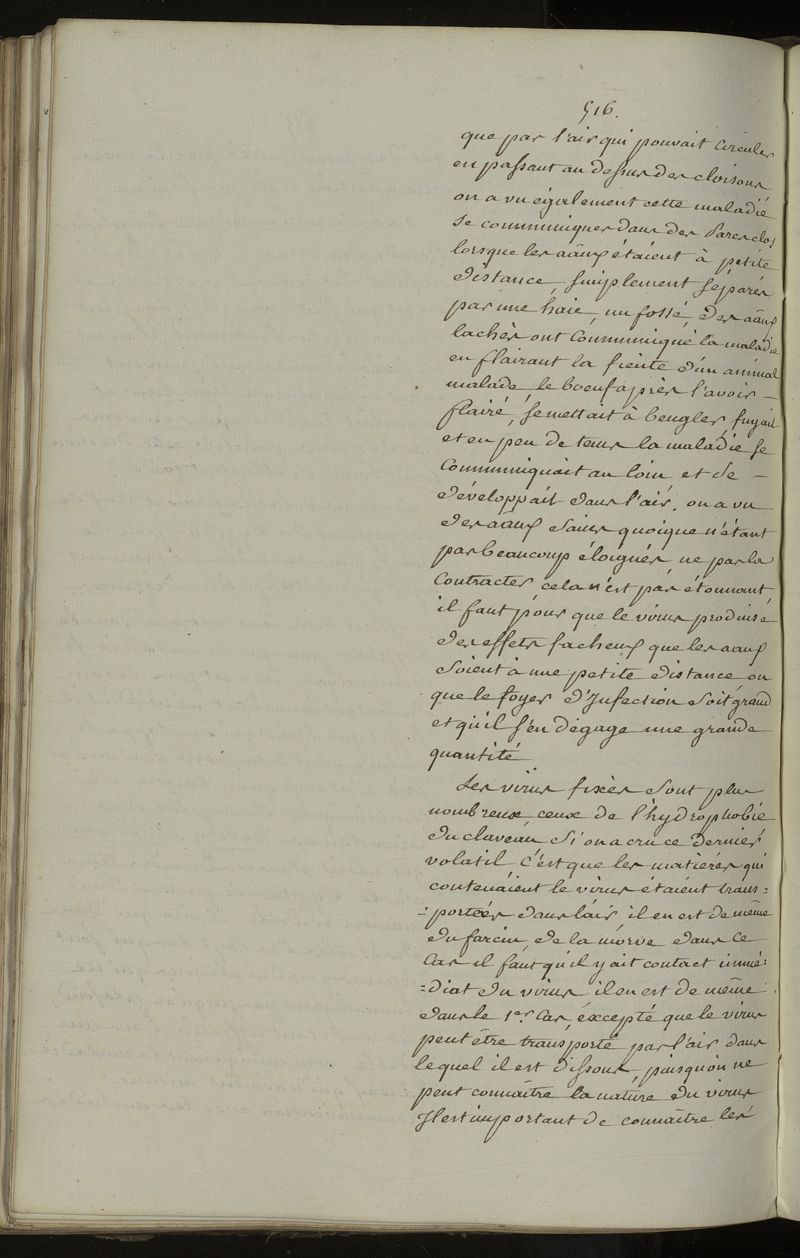 516.
que par l'air qui pouvait circuler
en passant au dessus des cloisons
on a vu également cette maladie
se communiquer dans des Parcs clos
lorsque les aāux étaient à petite
distance, simplement séparés
par une haie, un fossé, des aāux
lachés ont communiqué la maladie
en flairant la fiente d'un animal
malade, le boeuf après l'avoir –
flairé, se mettait à beugler, fuyait
et en peu de tems la maladie se
communiquait au loin et se –
développait dans l'air. on a vu
des aaux sains quoique n'étant
pas beaucoup éloignés, ne pas la
contracter, cela n'est pas étonnant,
il faut pour que le virus produise
des effets facheux que les aaux
soient à une petite distance ou
que le foyer d'Infection soit grand
et qu'il s'en dégage une grande
quantité
Les virus fixés sont plus
nombreux, ceux de l'hydrophobie
du claveau, si on a cru ce dernier
volatil, c'est que les matières qui
contenaient le virus étaient trans=
=portées dans l'air, il en est de même
du farcin, de la morve dans ce
cas il faut qu'il y ait contact immé=
=diat du virus, il en est de même
dans le 1er. cas, excepté que le virus
peut être transporté par l'air dans
lequel il est dissous, puisqu'on ne
peut connaître la nature du virus
Il est important de connaître les